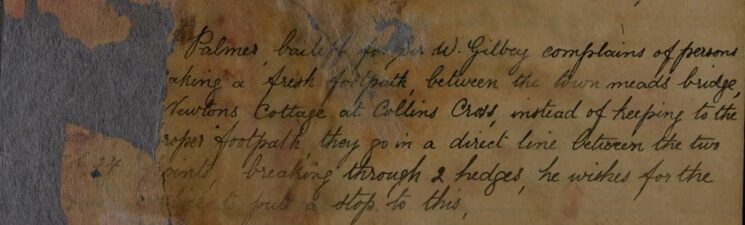 Palmer, bailiff for Sir W. Gilbey complains of persons
aking a fresh footpath, between the town meads bridge,
Newtons Cottage at Collins Cross, instead of keeping to the
roper footpath they go in a direct line between the two
24 oints, breaking through 2 hedges, he wishes for the
to put a stop to this,